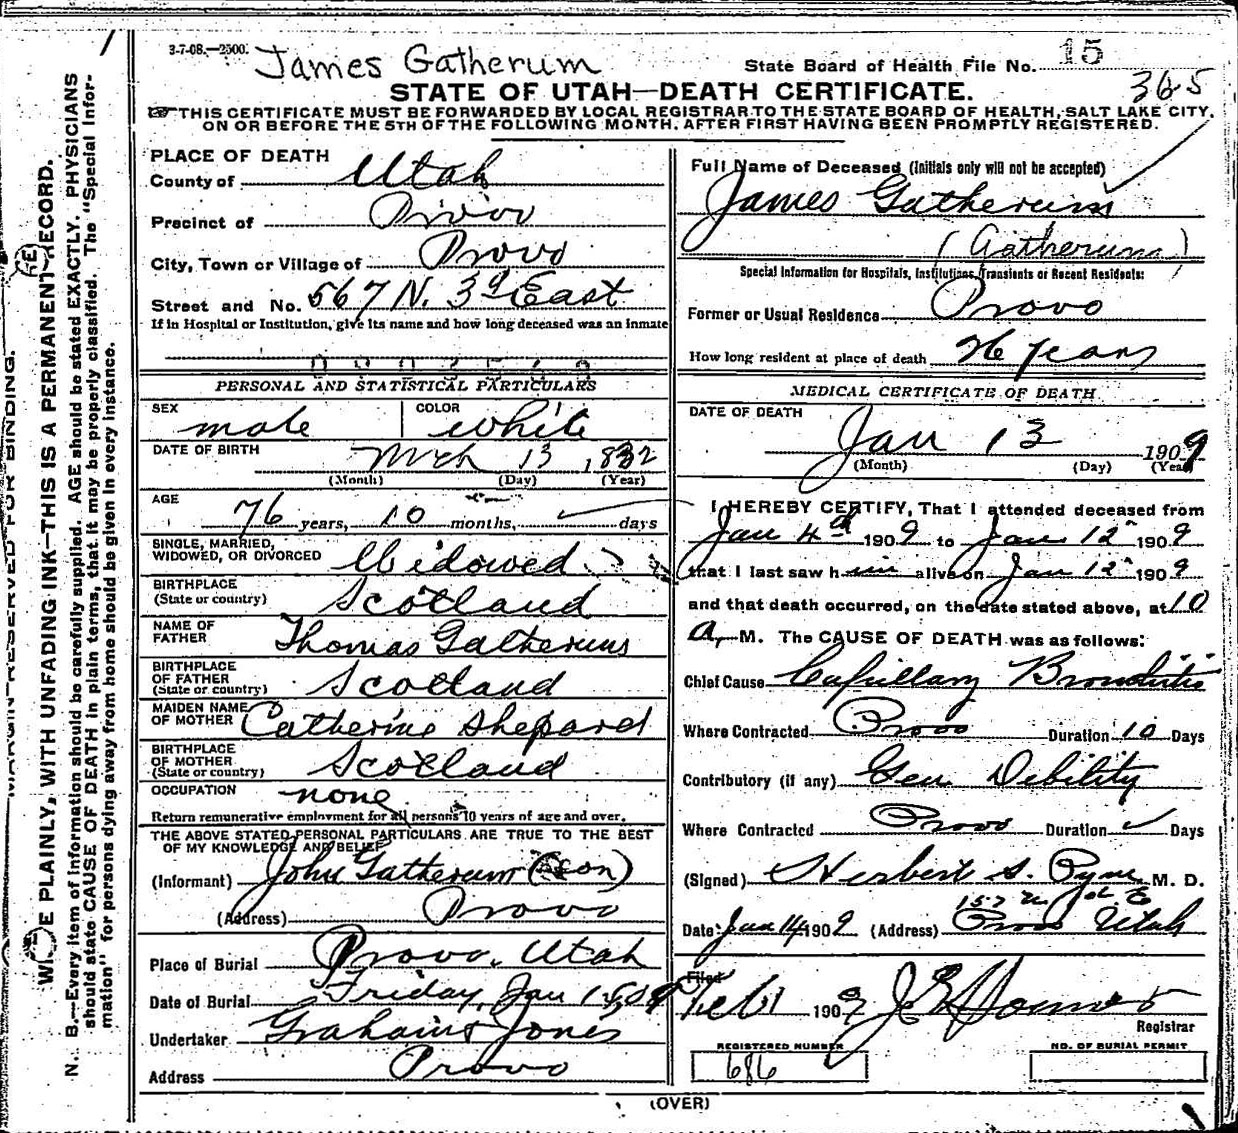 3-7-08.—2500.
James Gatherum
State Board of Health File No. 15
365
STATE OF UTAH—DEATH CERTIFICATE.
THIS CERTIFICATE MUST BE FORWARDED BY LOCAL REGISTRAR TO THE STATE BOARD OF HEALTH, SALT LAKE CITY,
ON OR BEFORE THE 5TH OF THE FOLLOWING MONTH, AFTER FIRST HAVING BEEN PROMPTLY REGISTERED.
PLACE OF DEATH
County of Utah
Precinct of Provo
City, Town or Village of Provo
Street and No. 567 N. 3d East
If in Hospital or Institution, give its name and how long deceased was an inmate
PERSONAL AND STATISTICAL PARTICULARS
SEX male COLOR white
DATE OF BIRTH Mch 13, 1832
(Month) (Day) (Year)
AGE 76 years, 10 months, days
SINGLE, MARRIED,
WIDOWED, OR DIVORCED Widowed
BIRTHPLACE
(State or country) Scotland
NAME OF
FATHER Thomas Gatherum
BIRTHPLACE
OF FATHER
(State or country) Scotland
MAIDEN NAME
OF MOTHER Catherine Shepard
BIRTHPLACE
OF MOTHER
(State or country) Scotland
OCCUPATION none
Return remunerative employment for all persons 10 years of age and over.
THE ABOVE STATED PERSONAL PARTICULARS ARE TRUE TO THE BEST
OF MY KNOWLEDGE AND BELIEF
(Informant) John Gatherum (Son)
(Address) Provo
Place of Burial Provo, Utah
Date of Burial Friday, Jan 15, 09
Undertaker Graham & Jones
Address Provo
Full Name of Deceased (Initials only will not be accepted)
James Gatherum
(Gatherum)
Special Information for Hospitals, Institutions, Transients or Recent Residents:
Former or Usual Residence Provo
How long resident at place of death 26 years
MEDICAL CERTIFICATE OF DEATH
DATE OF DEATH
Jan 13 1909
(Month) (Day) (Year)
I HEREBY CERTIFY, That I attended deceased from
Jan 4th 1909 to Jan 12" 1909
that I last saw him alive on Jan 12" 1909
and that death occurred, on the date stated above, at 10
A. M. The CAUSE OF DEATH was as follows:
Chief Cause Capillary Bronchitis
Where Contracted Provo Duration 10 Days
Contributory (if any) Gen Debility
Where Contracted Provo Duration Days
(Signed) Herbert S. Pyne, M. D.
Date Jan 14 1909 (Address) Provo Utah
Filed
Feb 1 1909
Registrar
REGISTERED NUMBER
686
NO. OF BURIAL PERMIT
(OVER)
MARGIN RESERVED FOR BINDING.
WRITE PLAINLY, WITH UNFADING INK—THIS IS A PERMANENT RECORD.
N. B.—Every item of information should be carefully supplied. AGE should be stated EXACTLY. PHYSICIANS
should state CAUSE OF DEATH in plain terms, that it may be properly classified. The "Special Infor-
mation" for persons dying away from home should be given in every instance.